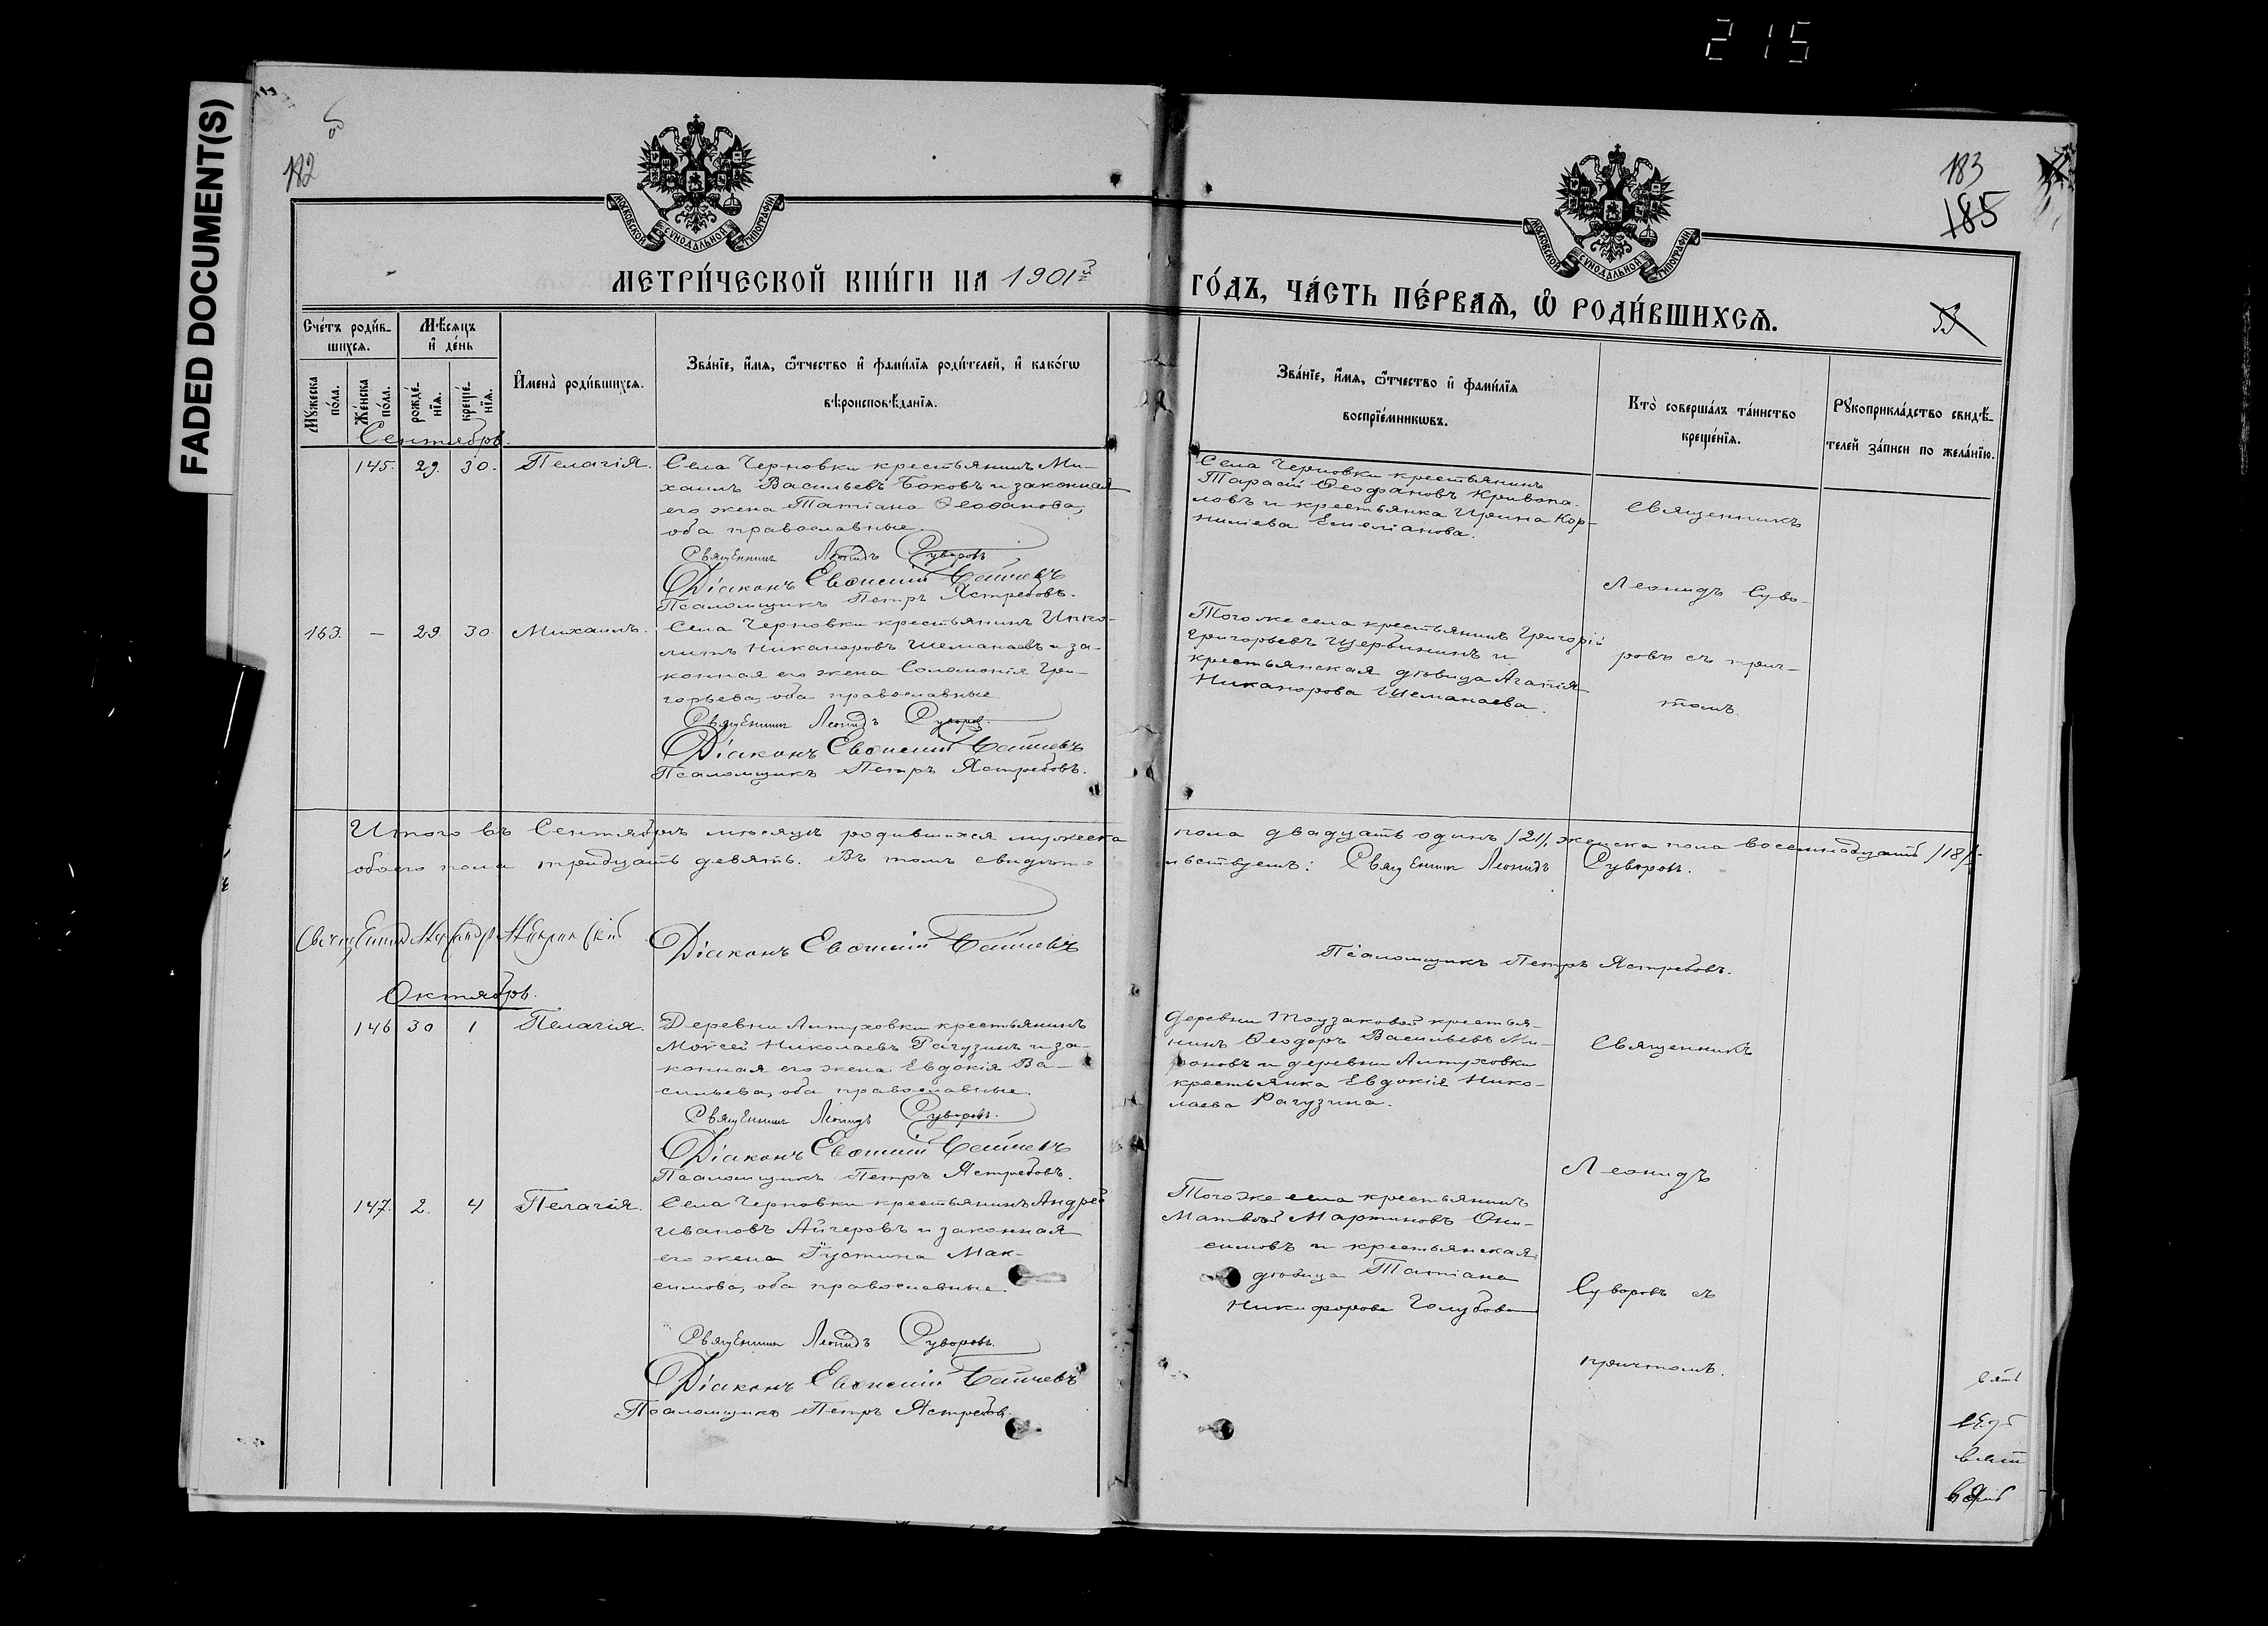 215
FADED DOCUMENT(S)
182
183
185
МОСКОВСКОЙ СѴНОДАЛЬНОЙ ТИПОГРАФІИ
МОСКОВСКОЙ СѴНОДАЛЬНОЙ ТИПОГРАФІИ
МЕТРИ́ЧЕСКОЙ КНИ́ГИ НА 1901й
ГО́ДЪ, ЧА́СТЬ ПЕ́РВАѦ, Ѡ҆ РОДИ́ВШИХСѦ.
53
Сче́тъ роди́в-
шихсѧ.
Мѣ́сѧцъ
и҆ де́нь
Мꙋ́жеска
по́ла.
Же́нска
по́ла.
рожде́-
нїѧ.
креще́-
нїѧ.
И҆мена̀ роди́вшихсѧ.
Зва́нїе, и҆́мѧ, ѻ҆́тчество и҆ фами́лїѧ роди́телей, и҆ како́гѡ
вѣроисповѣ́данїѧ.
Зва́нїе, и҆́мѧ, ѻ҆́тчество и҆ фами́лїѧ
воспрїе́мникѡвъ.
Кто̀ соверша́лъ та́инство
креще́нїѧ.
Рꙋкоприкла́дство свидѣ́-
телей за́писи по жела́нїю.
Сентябрь.
145. 29. 30. Пелагія. Села Черновки крестьянинъ Ми-
хаилъ Васильевъ Боковъ и законная
его жена Татіана Ѳеофанова,
оба православные.
Священникъ Леонидъ Суворовъ
Діаконъ Евѳимій
Псаломщикъ Петръ Ястребовъ.
Села Черновки крестьянинъ
Тарасій Ѳеофановъ Кривопа-
ловъ и крестьянка Ирина Кор-
ниліева Емеліанова.
Священникъ
Леонидъ Суво-
ровъ съ прич-
томъ.
163. — 29. 30. Михаилъ. Села Черновки крестьянинъ Иппо-
литъ Никаноровъ Шеманаевъ и за-
конная его жена Соломонія Гри-
горьева, оба православные
Священникъ Леонидъ Суворовъ.
Діаконъ Евѳимій
Псаломщикъ Петръ Ястребовъ.
Того же села крестьянинъ Григорій
Григорьевъ Щербининъ и
крестьянская дѣвица Агапія
Никанорова Шеманаева.
Итого въ Сентябрѣ мѣсяцѣ родившихся мужеска пола двадцать одинъ /21/, женска пола восемнадцать /18/,
обоего пола тридцать девять. Въ томъ свидѣте-льствуемъ: Священникъ Леонидъ Суворовъ.
Діаконъ Евѳимій
Псаломщикъ Петръ Ястребовъ.
Октябрь.
146 30 1 Пелагія. Деревни Алтуховки крестьянинъ
Моѵсей Николаевъ Рагузинъ и за-
конная его жена Евдокія Ва-
сильева, оба православные.
Священникъ Леонидъ Суворовъ.
Діаконъ Евѳимій
Псаломщикъ Петръ Ястребовъ.
Деревни Тоузаковой крестья-
нинъ Ѳеодоръ Васильевъ Ми-
роновъ и деревни Алтуховки
крестьянка Евдокія Нико-
лаева Рагузина.
Священникъ
Леонидъ
Суворовъ съ
причтомъ.
147. 2. 4 Пелагія. Села Черновки крестьянинъ Андрей
Ивановъ Айгеровъ и законная
его жена Іустина Мак-
симова, оба православные.
Священникъ Леонидъ Суворовъ.
Діаконъ Евѳимій
Псаломщикъ Петръ Ястребовъ.
Того же села крестьянинъ
Матвѣй Мартиновъ Они-
симовъ и крестьянская
дѣвица Татіана
Никифорова Голубова